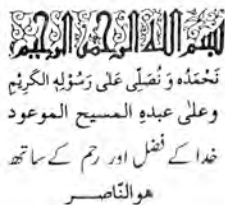 بسم الله الرحمن الرحيم
نَحْمَدُه وَ نُصَلِّى عَلٰى رَسُوْلِهِ الكَرِيْمِ
وعلٰى عبدهِ المسيح الموعود
خدا کے فضل اور رحم کے ساتھ
هو النّاصر